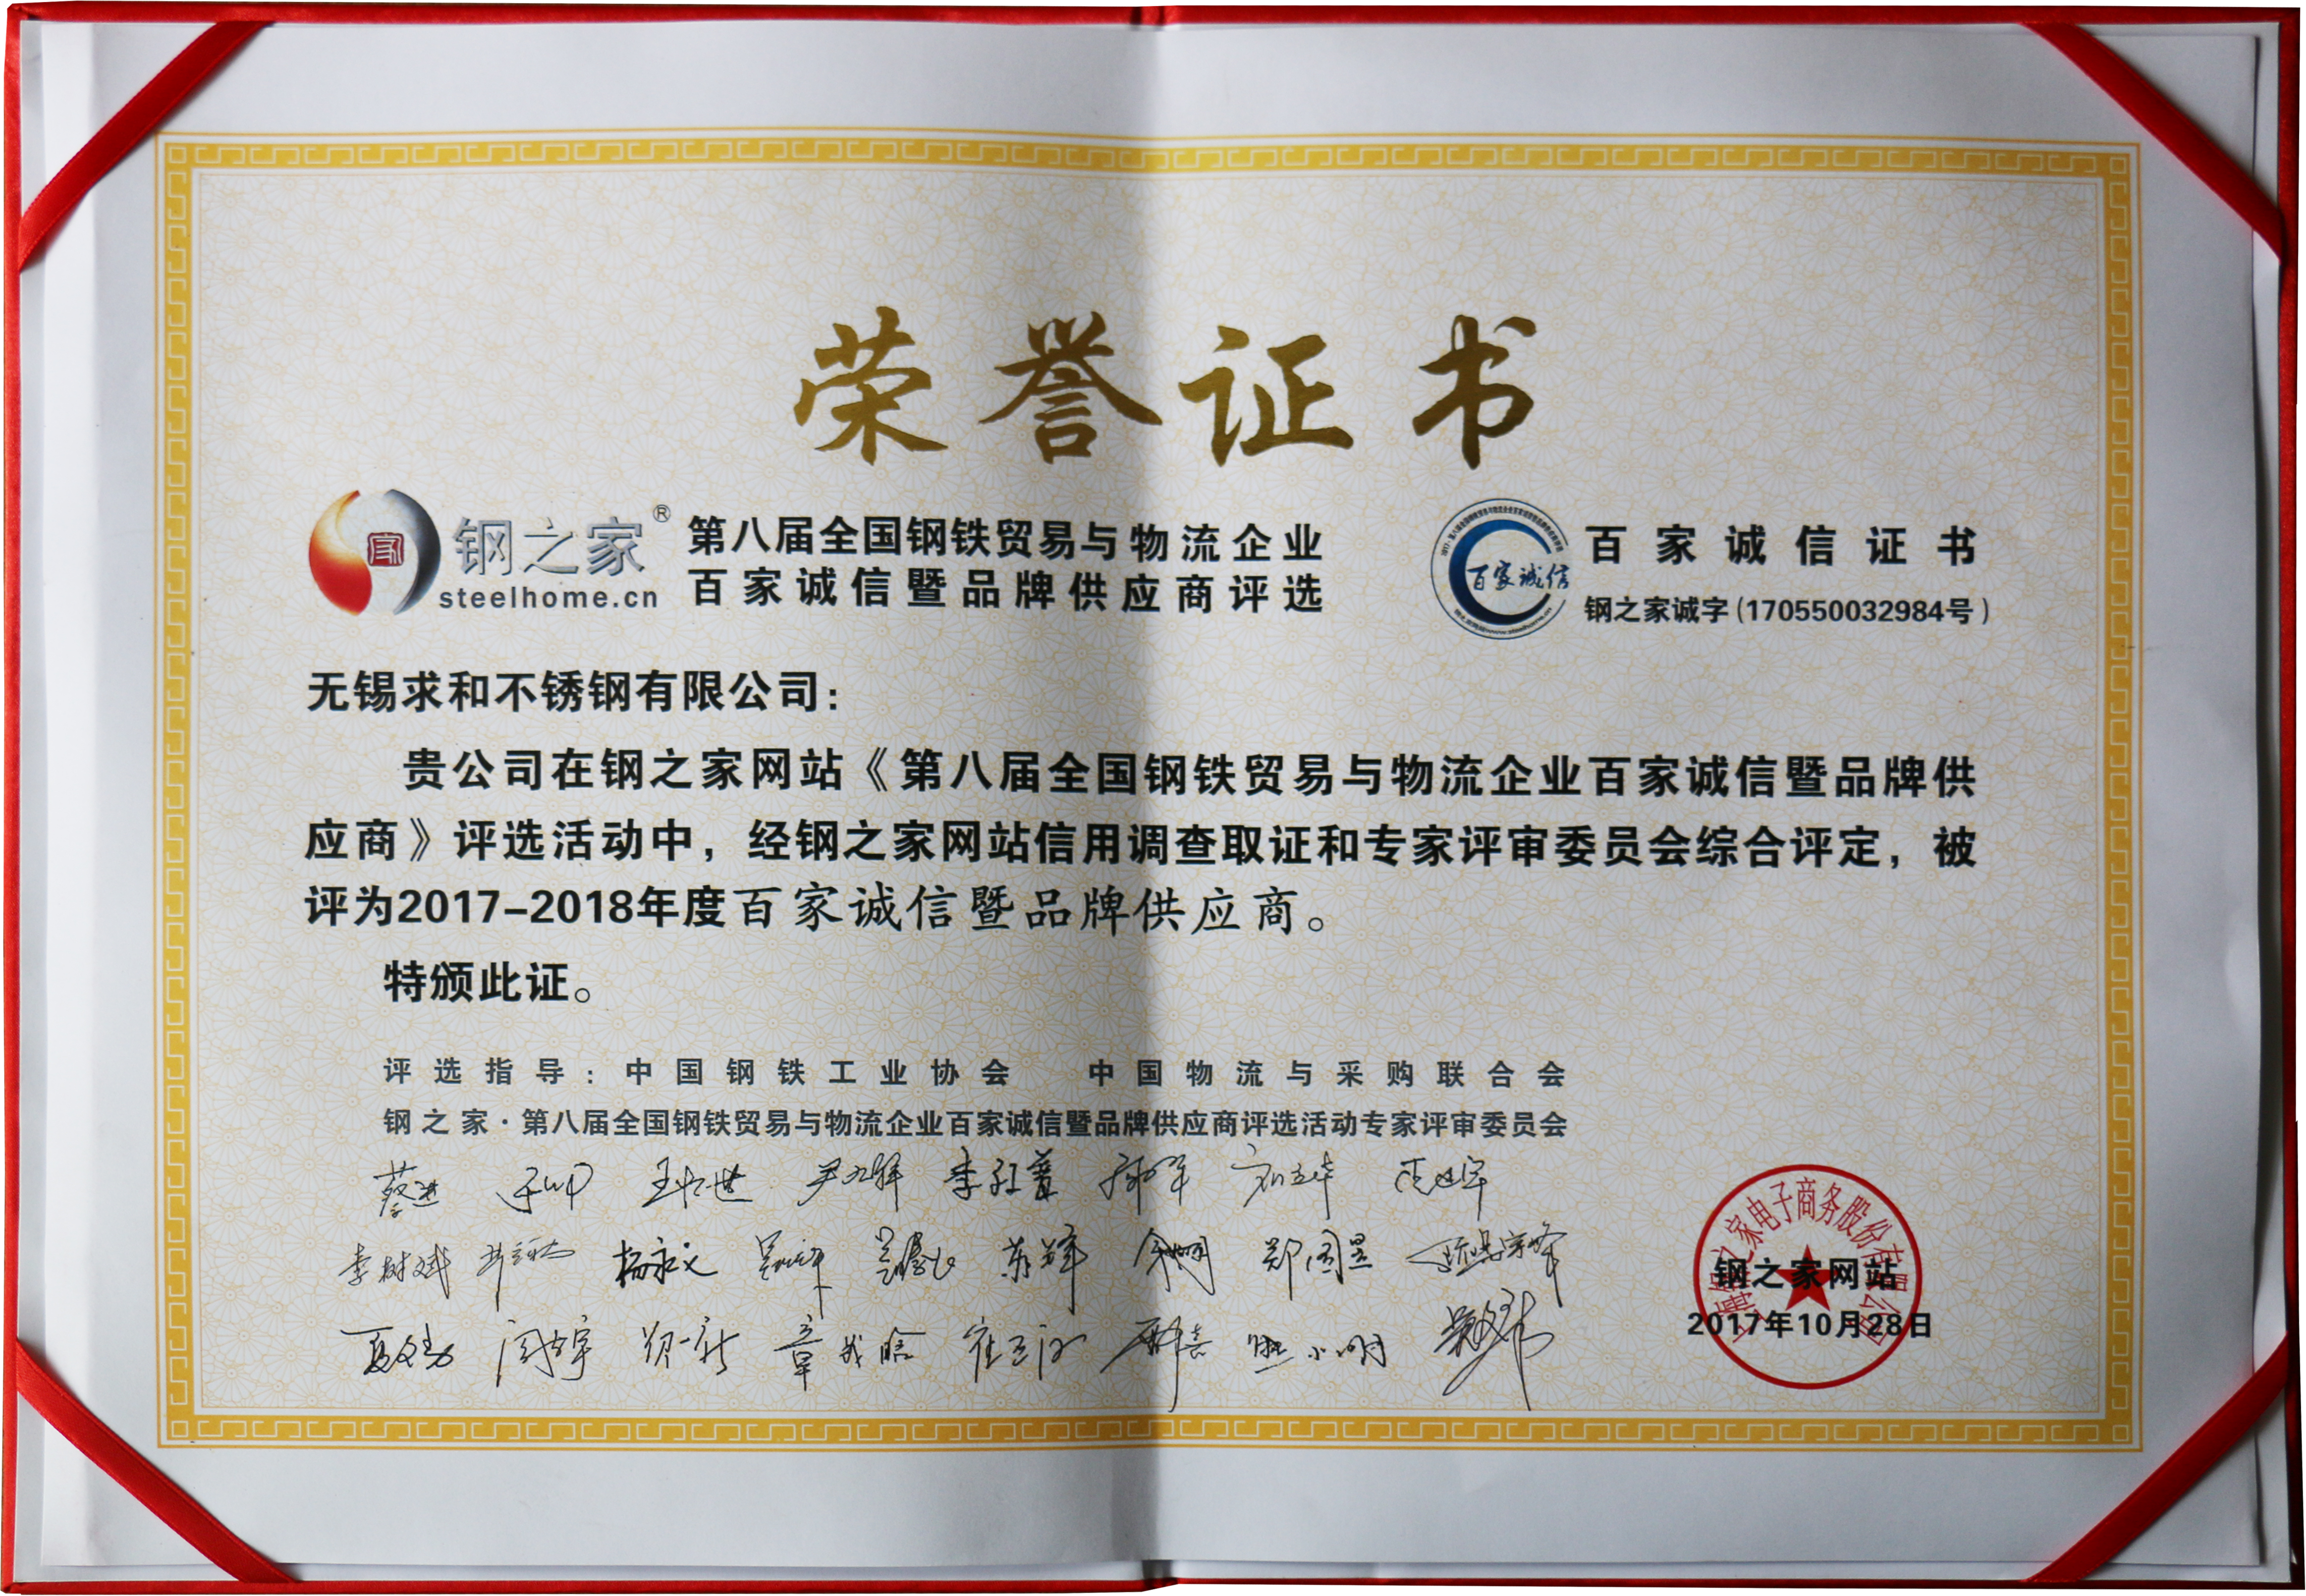 荣誉证书
钢之家®
steelhome.cn
第八届全国钢铁贸易与物流企业
百家诚信暨品牌供应商评选
百家诚信
百家诚信证书
钢之家诚字(170550032984号)
无锡求和不锈钢有限公司:
贵公司在钢之家网站《第八届全国钢铁贸易与物流企业百家诚信暨品牌供
应商》评选活动中，经钢之家网站信用调查取证和专家评审委员会综合评定，被
评为2017-2018年度百家诚信暨品牌供应商。
特颁此证。
评选指导：中国钢铁工业协会 中国物流与采购联合会
钢之家·第八届全国钢铁贸易与物流企业百家诚信暨品牌供应商评选活动专家评审委员会
蔡进
李树斌 杨永义
钢之家网站
2017年10月28日